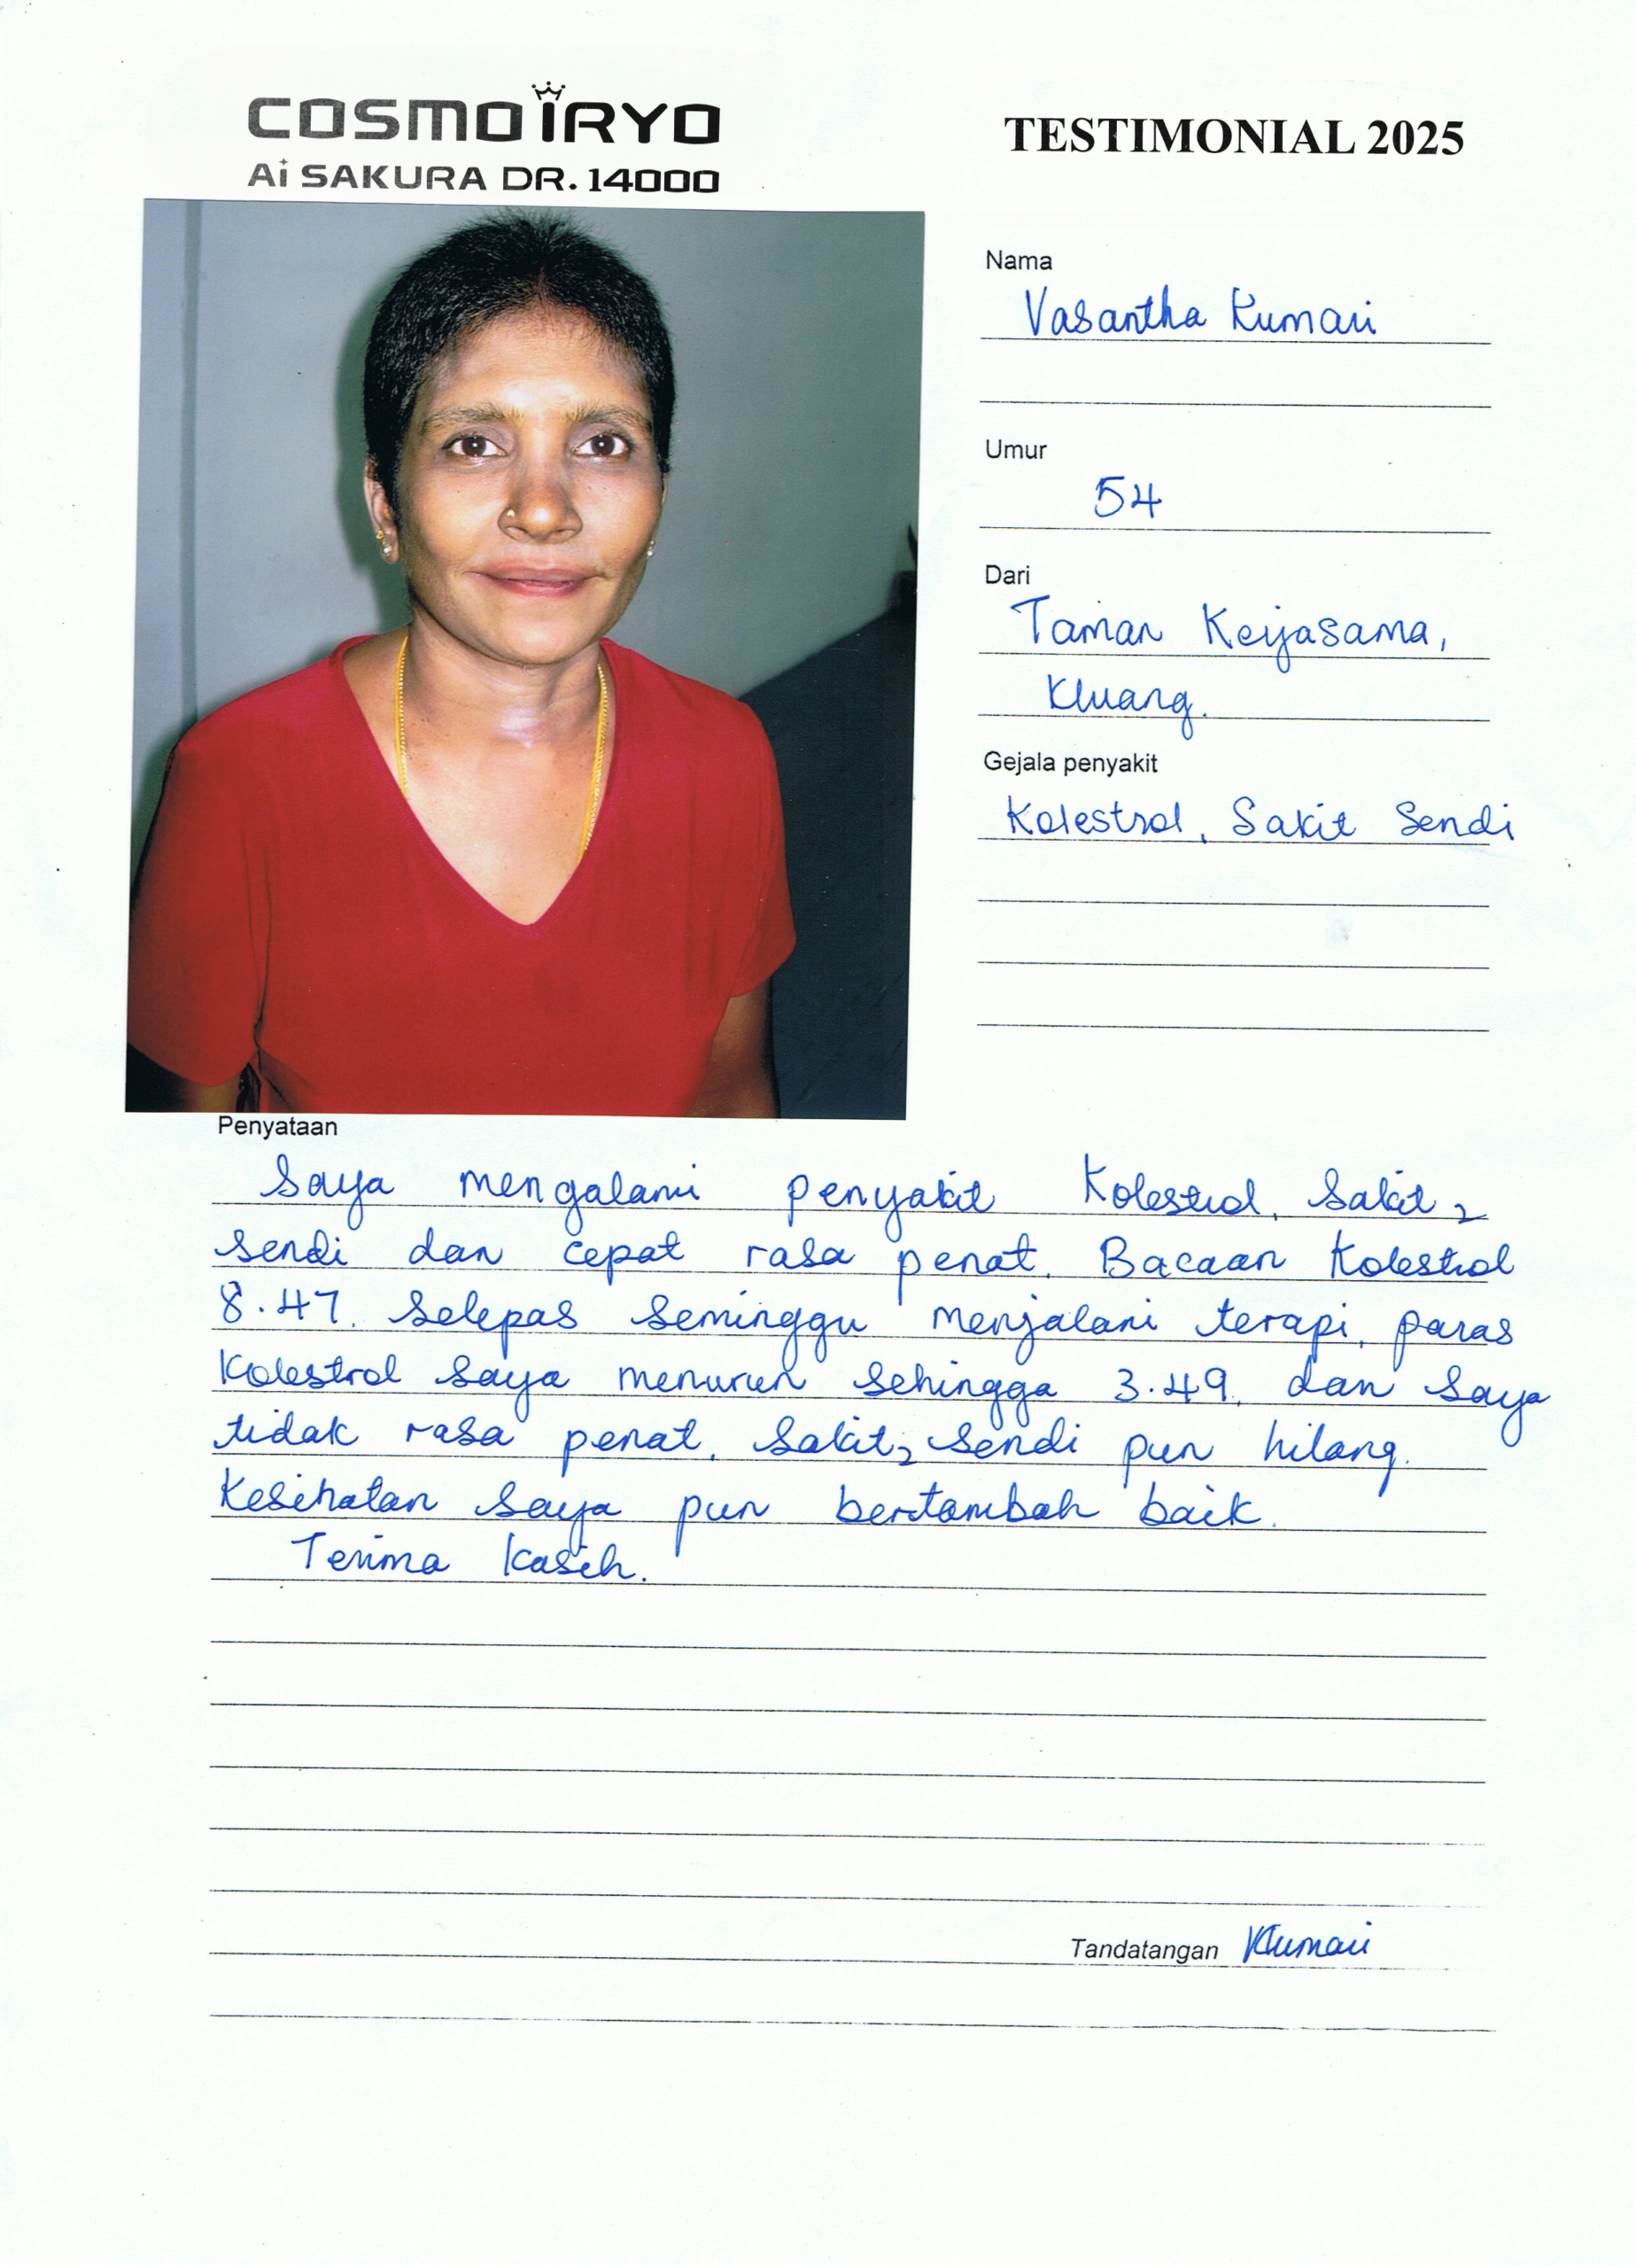 COSMO iRYO
Ai SAKURA DR. 14000
TESTIMONIAL 2025
Nama
Vasantha Kumari
Umur
54
Dari
Taman Kerjasama,
Kluang.
Gejala penyakit
Kolestrol, Sakit Sendi
Penyataan
Saya mengalami penyakit Kolestrol, Sakit2
sendi dan cepat rasa penat. Bacaan Kolestrol
8.47. Selepas seminggu menjalani terapi, paras
Kolestrol saya menurun sehingga 3.49, dan saya
tidak rasa penat, sakit2 sendi pun hilang.
Kesihatan saya pun bertambah baik.
Terima Kasih.
Tandatangan Kumari